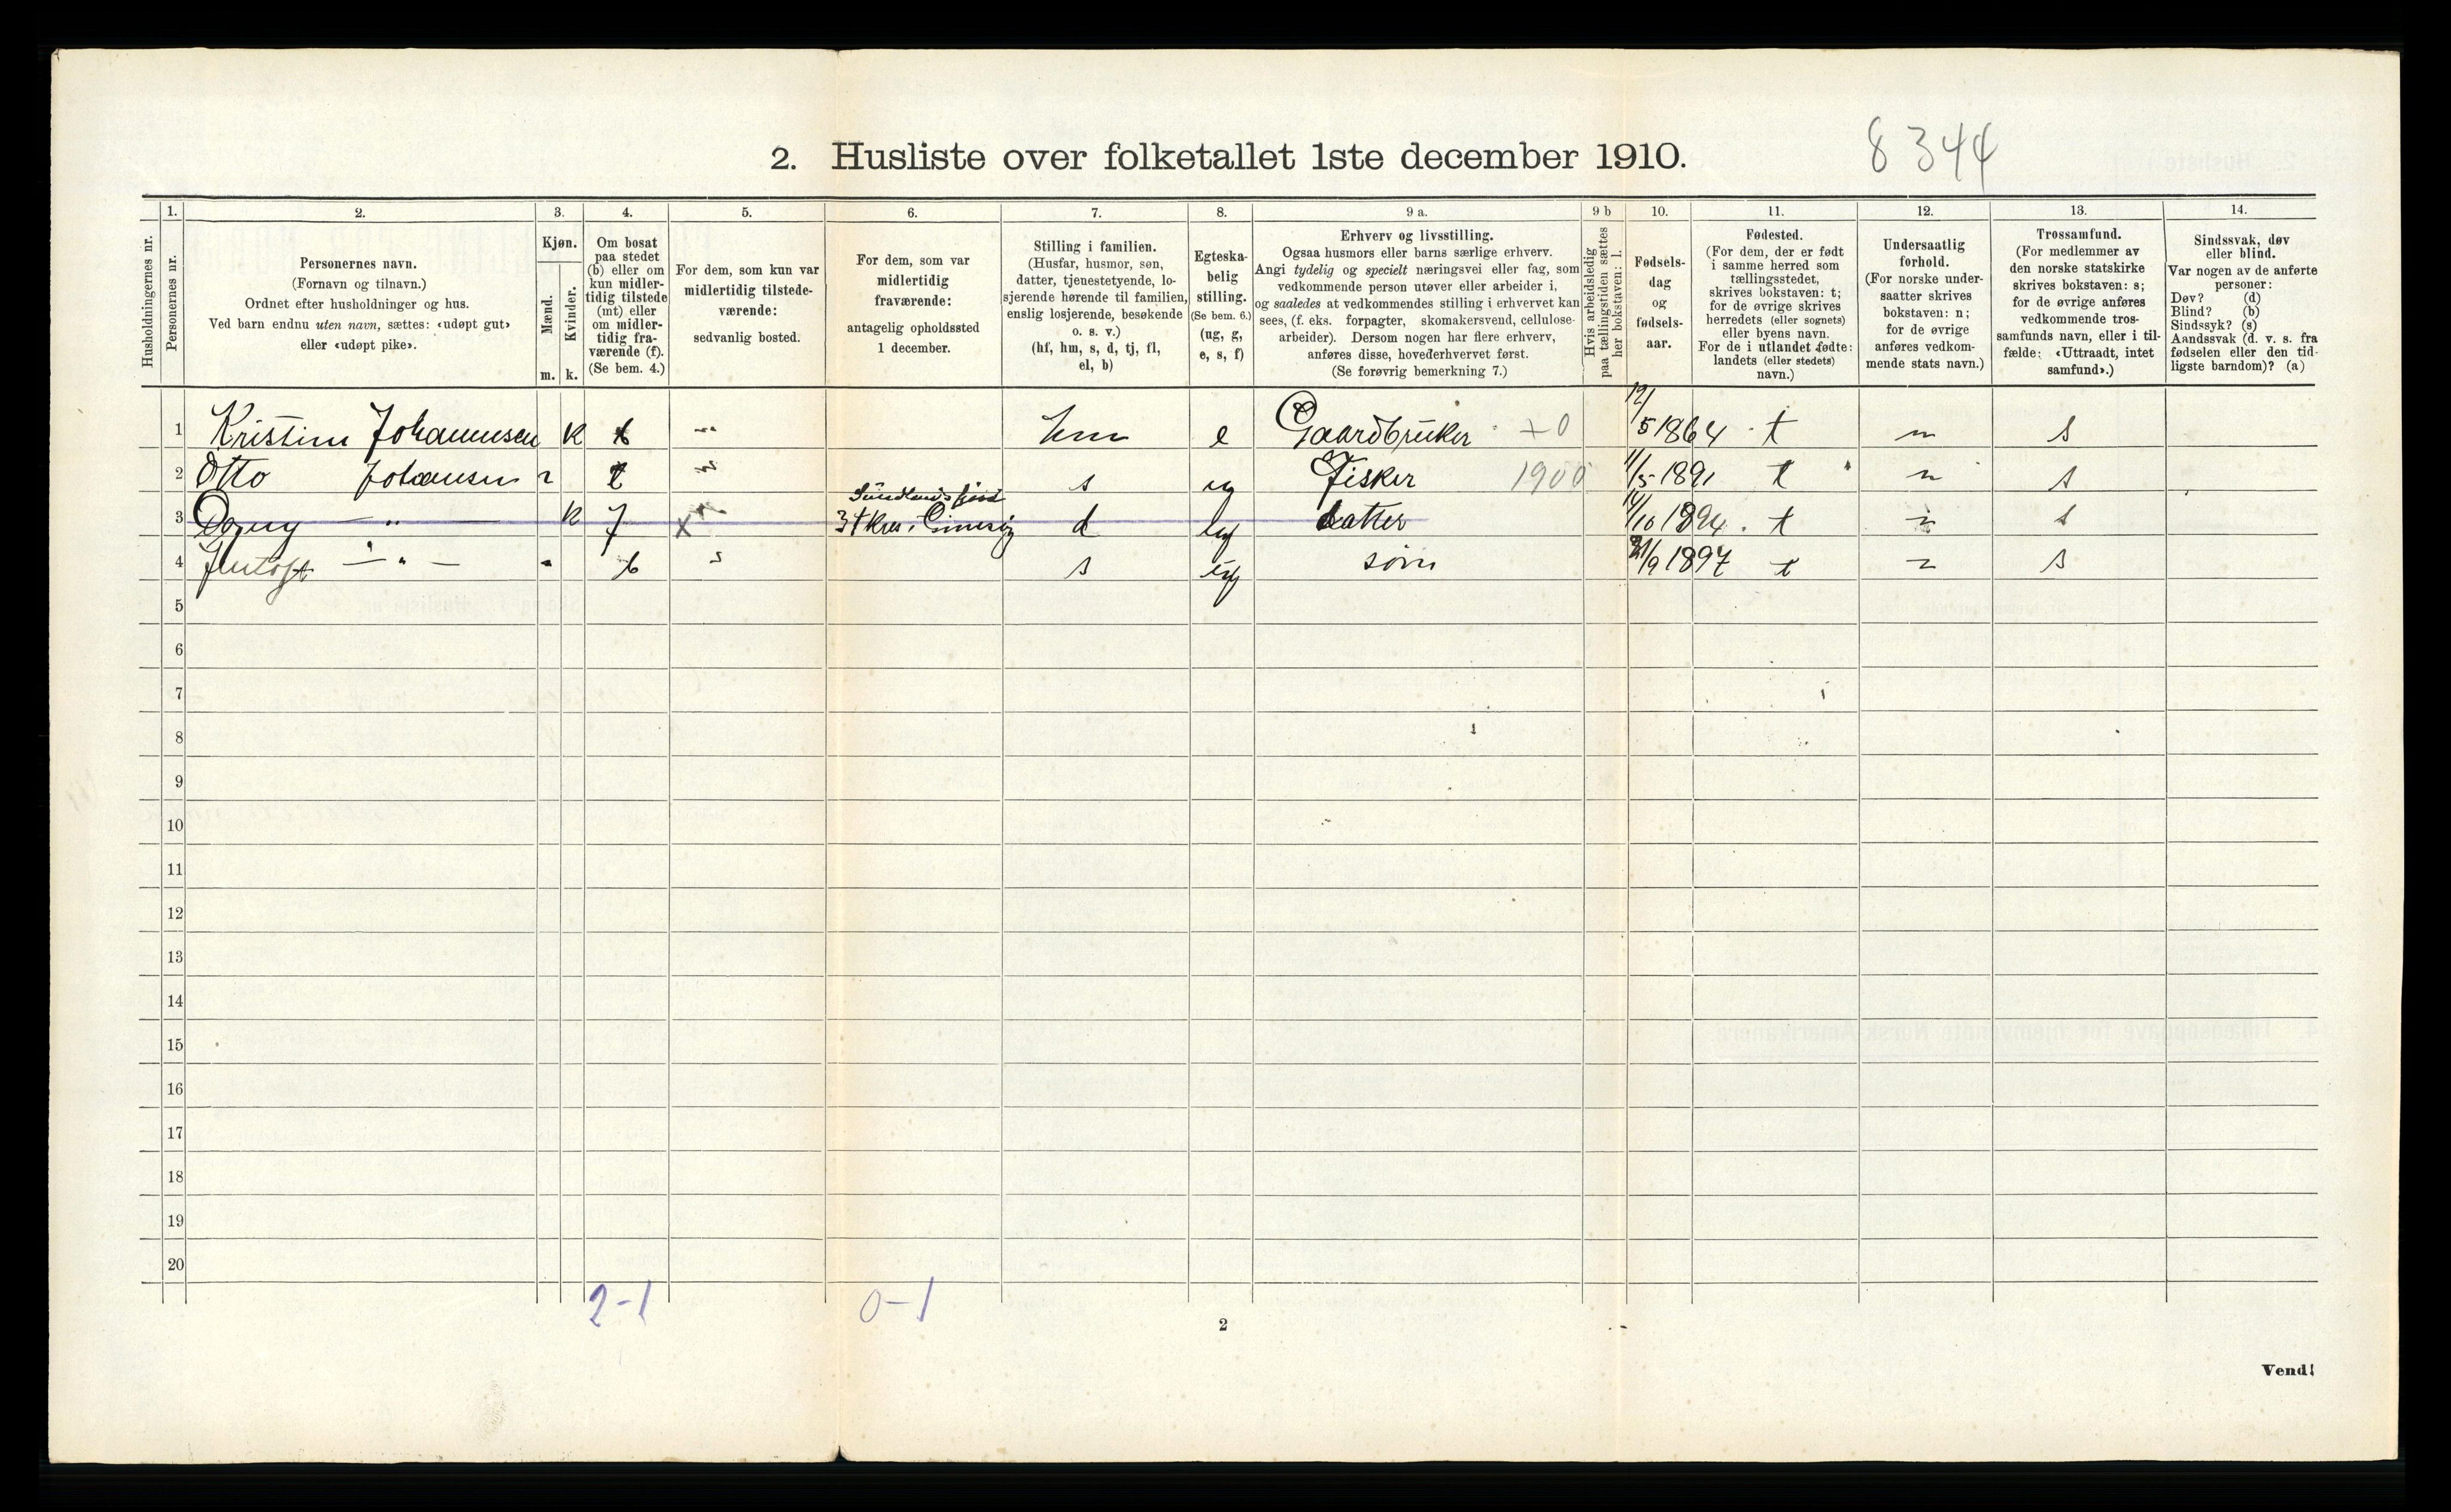 2. Husliste over folketallet 1ste december 1910.
8344
Husholdningernes nr.
1.
Personernes nr.
2.
Personernes navn.
(Fornavn og tilnavn.)
Ordnet efter husholdninger og hus.
Ved barn endnu uten navn, sættes: «udøpt gut»
eller «udøpt pike».
3.
Kjøn.
Mænd.
Kvinder.
m. k.
4.
Om bosat
paa stedet
(b) eller om
kun midler-
tidig tilstede
(mt) eller
om midler-
tidig fra-
værende (f).
(Se bem. 4.)
5.
For dem, som kun var
midlertidig tilstede-
værende:
sedvanlig bosted.
6.
For dem, som var
midlertidig
fraværende:
antagelig opholdssted
1 december.
7.
Stilling i familien.
(Husfar, husmor, søn,
datter, tjenestetyende, lo-
sjerende hørende til familien,
enslig losjerende, besøkende
o. s. v.)
(hf, hm, s, d, tj, fl,
el, b)
8.
Egteska-
belig
stilling.
(Se bem. 6.)
(ug, g,
e, s, f)
9 a.
Erhverv og livsstilling.
Ogsaa husmors eller barns særlige erhverv.
Angi tydelig og specielt næringsvei eller fag, som
vedkommende person utøver eller arbeider i,
og saaledes at vedkommendes stilling i erhvervet kan
sees, (f. eks. forpagter, skomakersvend, cellulose-
arbeider). Dersom nogen har flere erhverv,
anføres disse, hovederhvervet først.
(Se forøvrig bemerkning 7.)
9 b
Hvis arbeidsledig
paa tællingstiden sættes
her bokstaven: l.
10.
Fødsels-
dag
og
fødsels-
aar.
11.
Fødested.
(For dem, der er født
i samme herred som
tællingsstedet,
skrives bokstaven: t;
for de øvrige skrives
herredets (eller sognets)
eller byens navn.
For de i utlandet fødte:
landets (eller stedets)
navn.)
12.
Undersaatlig
forhold.
(For norske under-
saatter skrives
bokstaven: n;
for de øvrige
anføres vedkom-
mende stats navn.)
13.
Trossamfund.
(For medlemmer av
den norske statskirke
skrives bokstaven: s;
for de øvrige anføres
vedkommende tros-
samfunds navn, eller i til-
fælde: «Uttraadt, intet
samfund».)
14.
Sindssvak, døv
eller blind.
Var nogen av de anførte
personer:
Døv? (d)
Blind? (b)
Sindssyk? (s)
Aandssvak (d. v. s. fra
fødselen eller den tid-
ligste barndom)? (a)
1 Kristine Johannesen K b " hm e Gaardbruker 12/5 1864 t n s
2 Otto Johansen b " s ug Fisker 1900 11/5 1891 t n s
3 Dagny — " — K f x d ug datter /10 1894 t n s
4 — " — b " s ug sønn 21/9 1897 t n s
5
6
7
8
9
10
11
12
13
14
15
16
17
18
19
20
2-1 0-1
2
Vend!